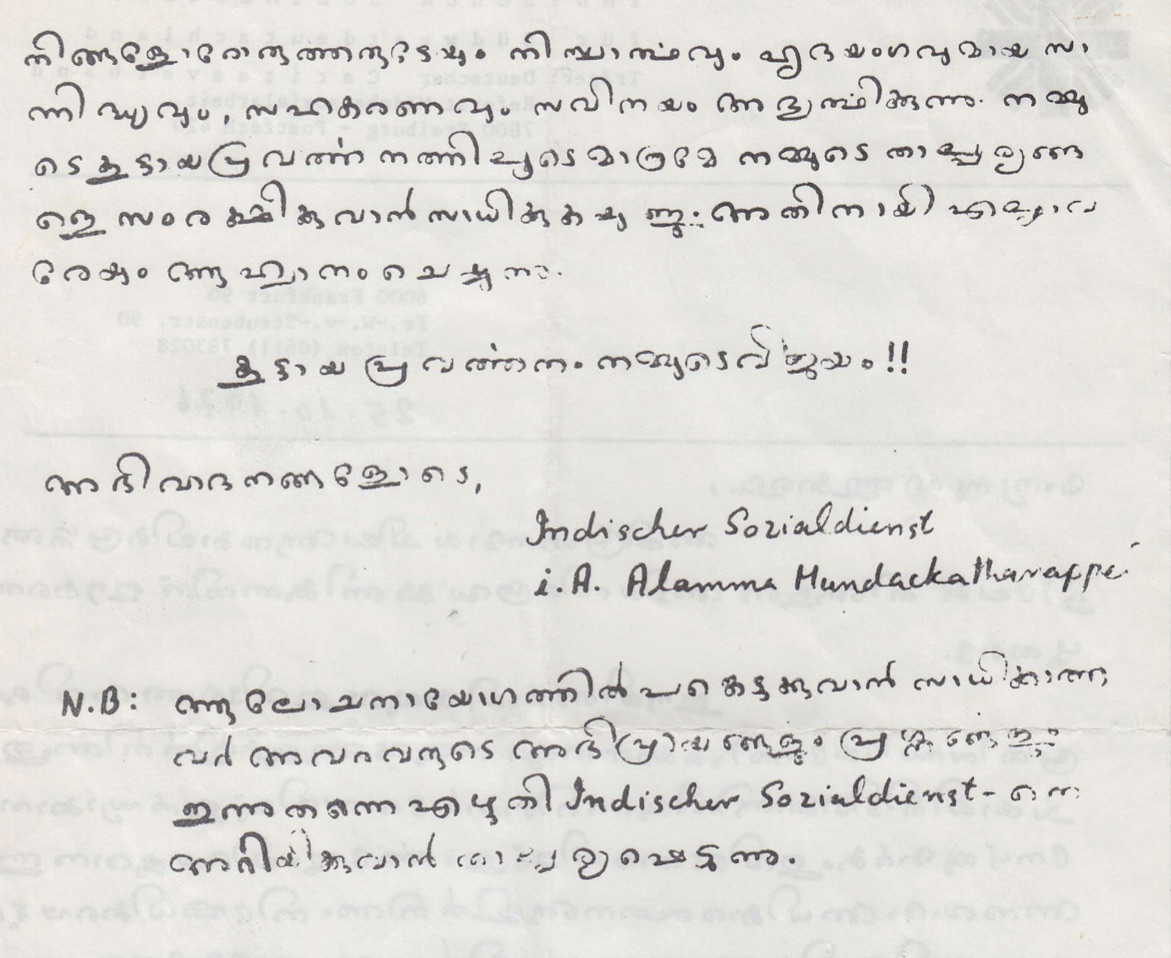 നിങ്ങളോരോരുത്തരുടേയും നിസ്വാർത്ഥവും ഹൃദയംഗവുമായ സാ
ന്നിദ്ധ്യവും, സഹകരണവും സവിനയം അഭ്യർത്ഥിക്കുന്നു. നമ്മു
ടെ കൂട്ടായപ്രവർത്തനത്തിലൂടെ മാത്രമേ നമ്മുടെ താല്പര്യങ്ങ
ളെ സംരക്ഷിക്കുവാൻ സാധിക്കുകയുള്ളൂ. അതിനായി എല്ലാവ
രേയും ആഹ്വാനം ചെയ്യുന്നു.
കൂട്ടായ പ്രവർത്തനം നമ്മുടെ വിജയം!!
അഭിവാദനങ്ങളോടെ,
Indischer Sozialdienst
i.A. Alamma Mundackatharappel
N.B: ആലോചനായോഗത്തിൽ പങ്കെടുക്കുവാൻ സാധിക്കാത്ത
വർ അവരവരുടെ അഭിപ്രായങ്ങളും പ്രശ്നങ്ങളും
ഇന്നുതന്നെ എഴുതി Indischer Sozialdienst-നെ
അറിയിക്കുവാൻ താല്പര്യപ്പെടുന്നു.